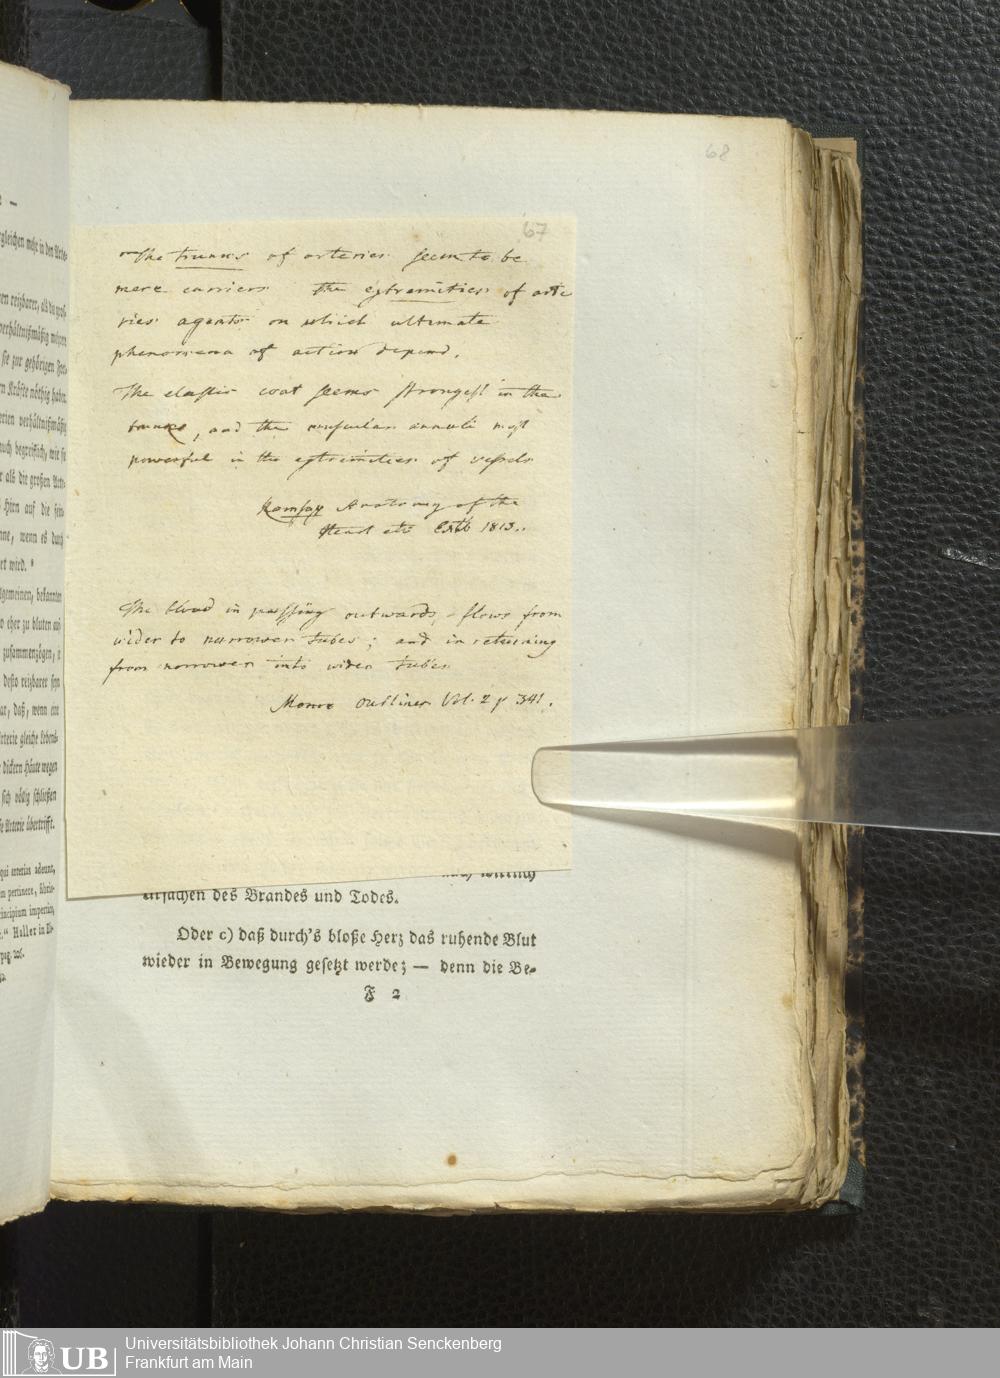 68
67
The trunks of arteries seem to be
mere carriers the extremities of arte
ries agents on which ultimate
phenomena of action depend.
The elastic coat seems strongest in the
trunks, and the muscular annuli most
powerful in the extremities of vessels
Ramsay Anatomy of the
Heart etc Edb 1813.
The blood in passing outwards flows from
wider to narrower tubes; and in returning
from narrower into wider tubes
Monro outlines Vol. 2 p 341.
wirklich
Ursachen des Brandes und Todes.
Oder c) daß durch's bloße Herz das ruhende Blut
wieder in Bewegung gesetzt werde; — denn die Be-
F 2
gleichen mehr in den Arte-
en reizbarer, als die groß-
verhältnißmäßig mehrere
sie zur gehörigen
n Kräfte nöthig haben
erien verhältnißmäßig
auch begreiflich, wie sie
r als die großen Arte-
Hirn auf die
nne, wenn es durch
et wird. *
gemeinen, bekannten
o eher zu bluten auf-
zusammenzögen, je
desto reizbarer seyn
ar, daß, wenn eine
Arterie gleiche lebend-
dickern Häute wegen
sich völlig schließen
e Arterie übertrifft.
qui arterias adeunt,
m pertinere, fibris
rincipium impertin,
." Haller in El-
pag. 206.
Universitätsbibliothek Johann Christian Senckenberg
Frankfurt am Main
UB